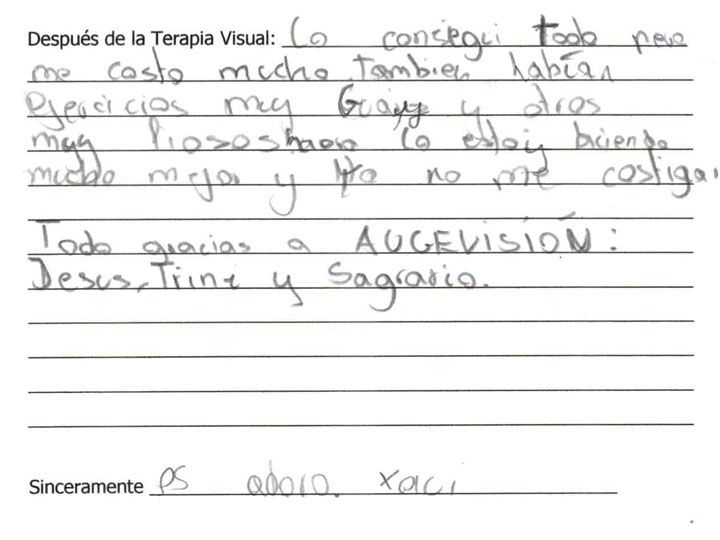 Después de la Terapia Visual: Lo consegui todo pero
me costo mucho. Tambien habían
Ejercicios muy Guays y otros
muy liososhaora lo estoy biciendo
mucho mejor y Ya no me castigan
Todo gracias a AUGEVISIÓN:
Jesus, Trini y Sagrario.
Sinceramente os adoro. Xavi